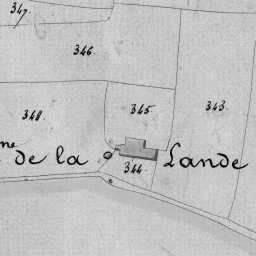 347.
346.
348.
345.
343.
ne de la Lande
344